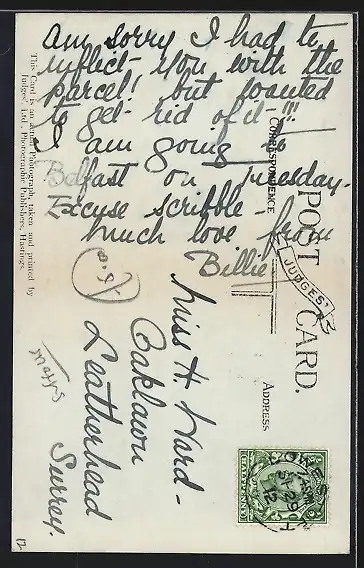 Am sorry I had to
inflict you with the
parcel! but wanted
to get rid of it !!!
I am going to
Belfast on Tuesday.
Excuse scribble -
much love from
Billie
This Card is an Actual Photograph, taken and printed by
Judges', Ltd., Photographic Publishers, Hastings.
POST CARD.
CORRESPONDENCE
JUDGES'
ADDRESS
Miss H. Ward -
Oaklawn
Leatherhead
Surrey.
OC 29
12
12